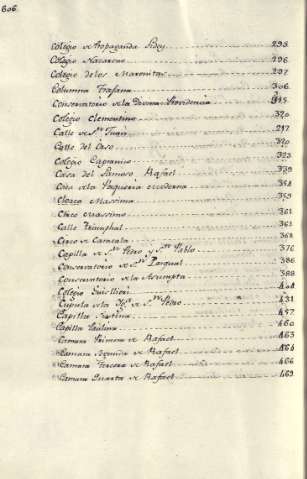 606.
Colegio de Propaganda Fidey 295
Colegio Nazareno 296
Colegio de los Maronitas 297
Columna Trajana 306
Conservatorio de la Divina Providencia 315
Colegio Clementino 320
Calle de Sn. Juan 297
Calle del Caso 320
Colegio Capranico 323
Casa del famoso Rafael 339
Casa de la Vaqueria moderna 358
Cloaca Massima 359
Circo Massimo 361
Calle Triumphal 361
Circo de Caracala 368
Capilla de Sn. Pedro y Sn. Pablo 376
Conservatorio de Sn. Pasqual 386
Conservatorio de la Assumpta 388
Colegio 404
Cupula de la Ygª. de Sn. Pedro 431
Capilla Sixtina 457
Capilla Paulina 460
Camara Primera de Rafael 463
Camara Segunda de Rafael 464
Camara Tercera de Rafael 466
Camara Quarta de Rafael 469